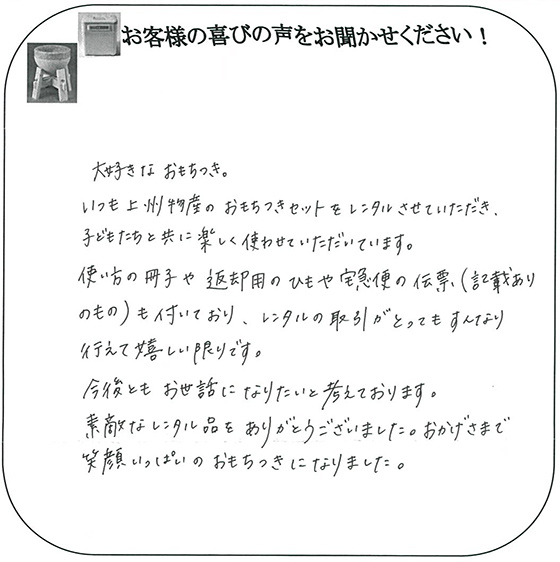 お客様の喜びの声をお聞かせください！
大好きな おもちつき。
いつも上州物産の おもちつきセットを レンタルさせていただき、
子どもたちと共に楽しく使わせていただいています。
使い方の冊子や 返却用のひもや宅急便の伝票（記載あり
のもの）も付いており、レンタルの取引がとってもすんなり
行えて嬉しい限りです。
今後とも お世話になりたいと考えております。
素敵なレンタル品を ありがとうございました。おかげさまで
笑顔いっぱいの おもちつきになりました。